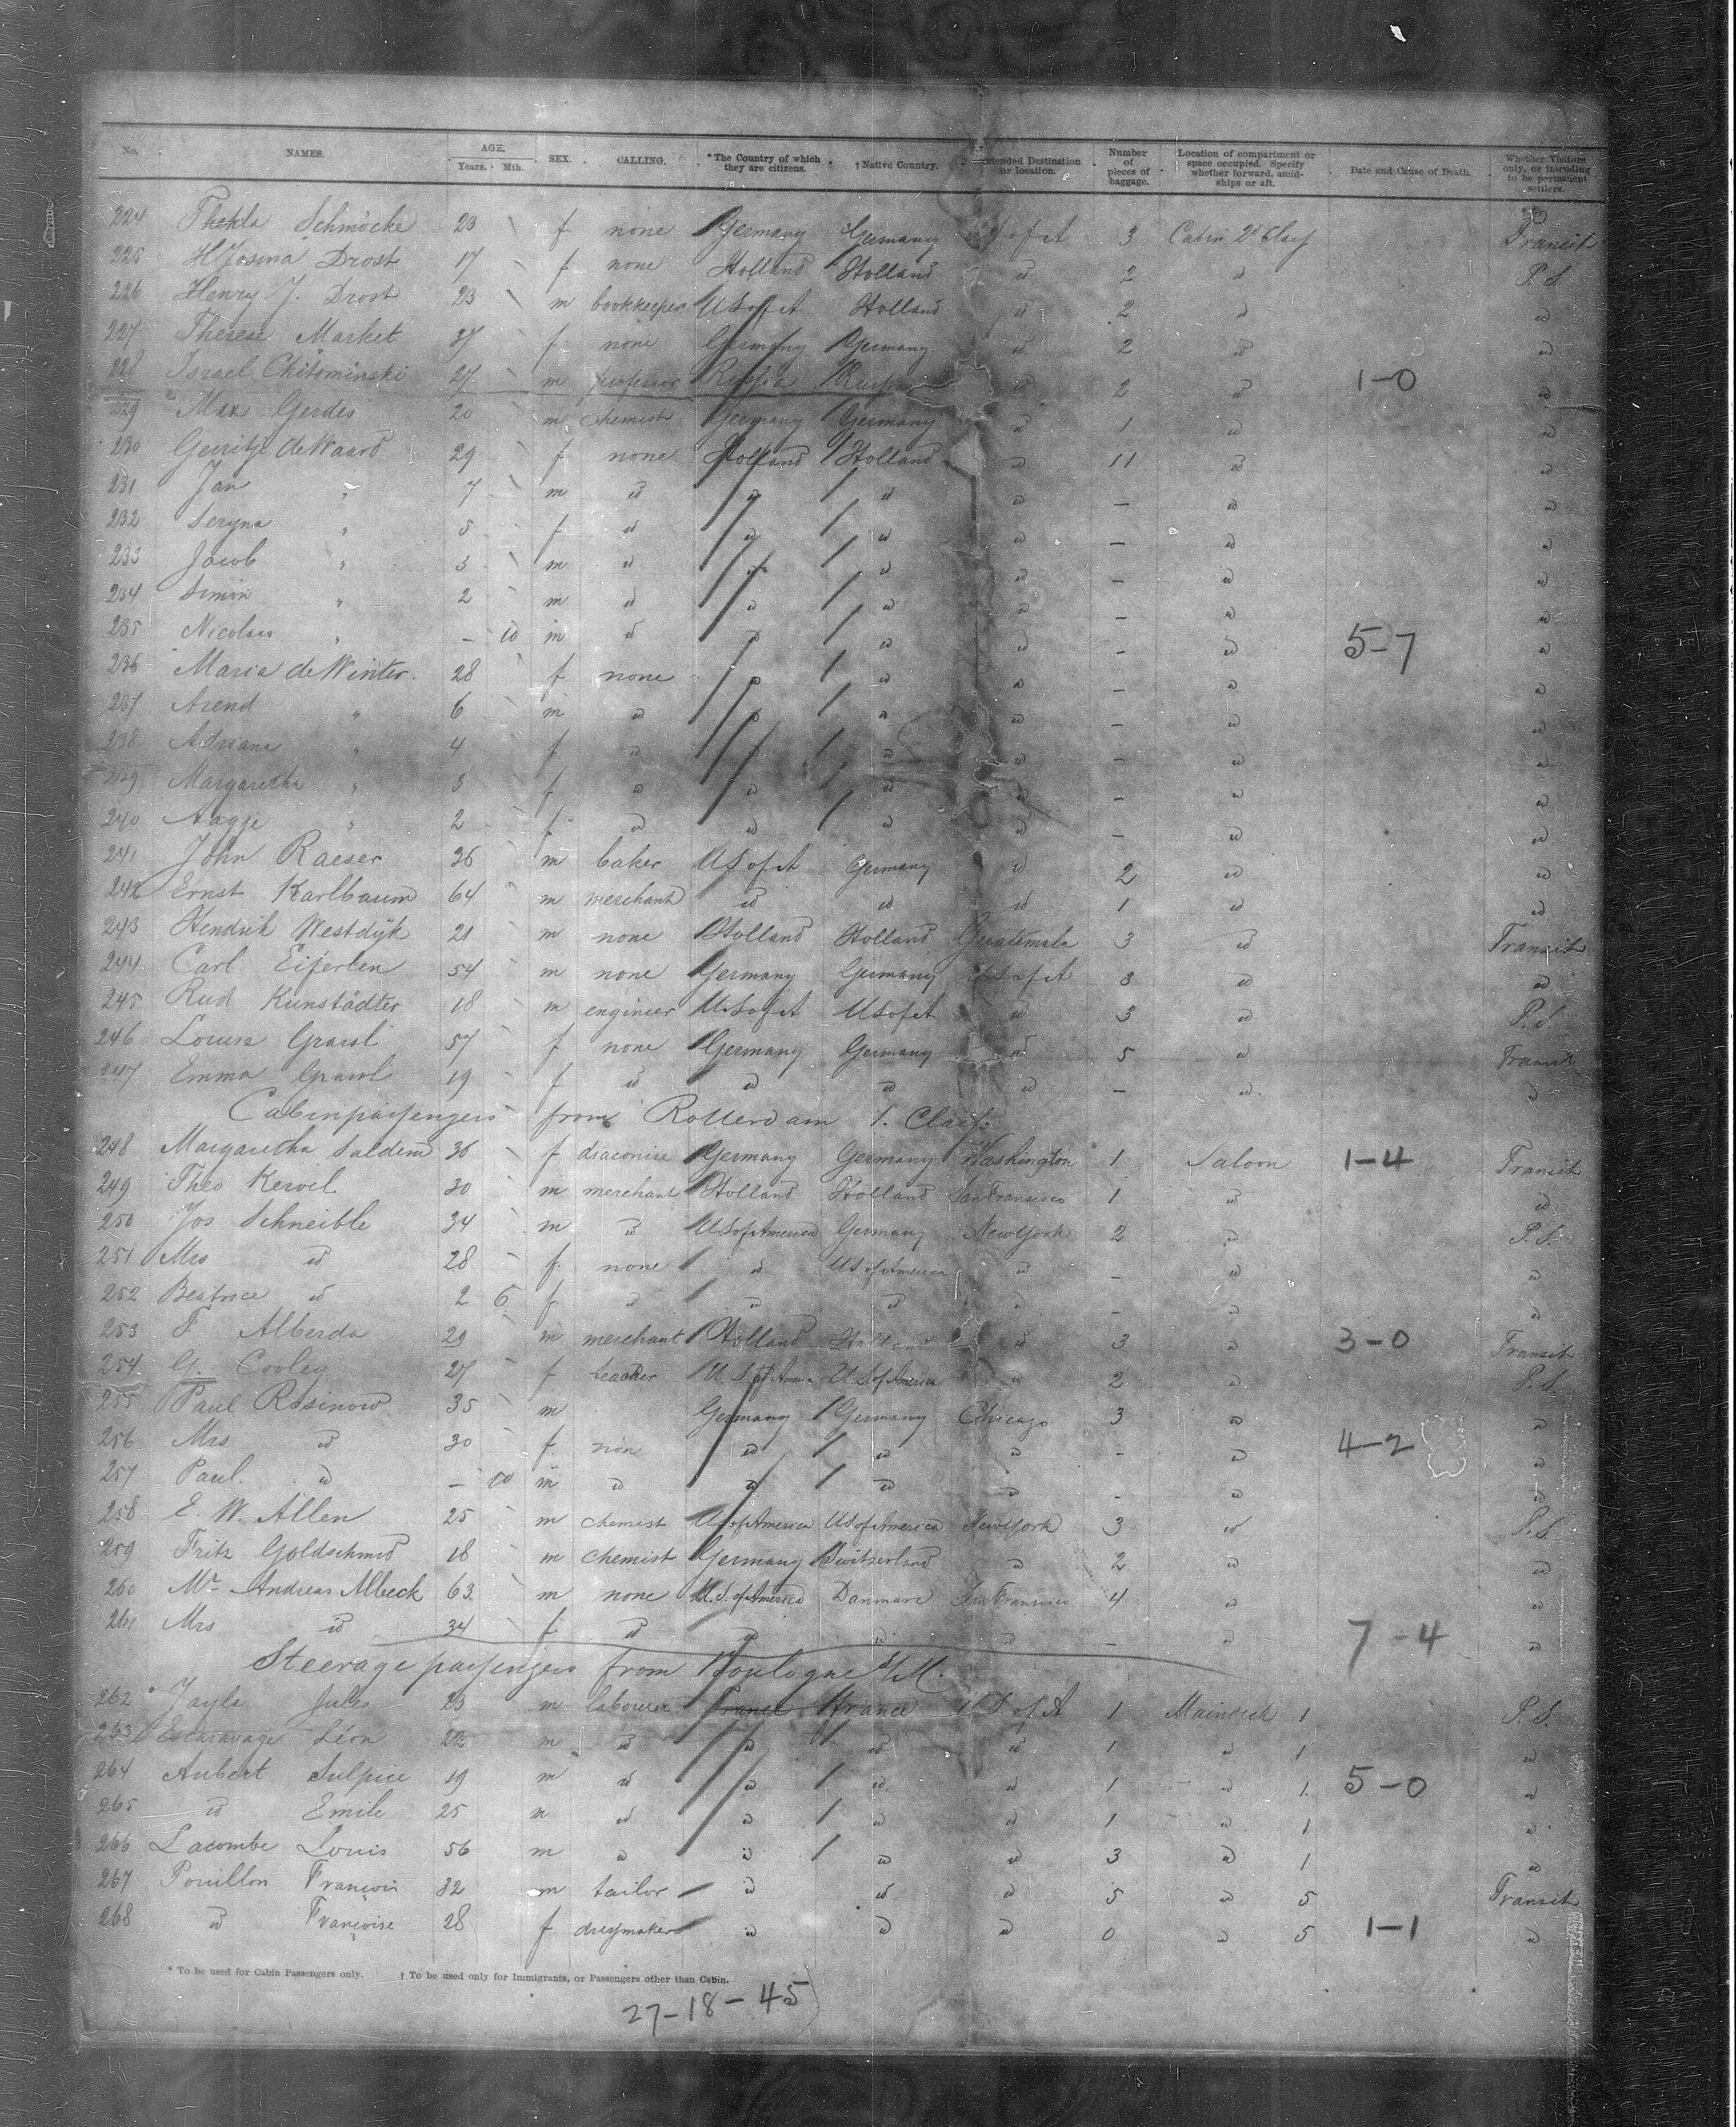 No. NAMES. AGE. Years. Mth. SEX. CALLING. *The Country of which they are citizens. †Native Country. Intended Destination or location. Number of pieces of baggage. Location of compartment or space occupied. Specify whether forward, amidships or aft. Date and Cause of Death. Whether Visitors only, or intending to be permanent settlers.
224 Thekla Schmöcke 23 f none Germany Germany U S of A 3 Cabin 2d Class Transit
225 H Josina Drost 17 f none Holland Holland id 2 id P. S
226 Henry J. Drost 23 m bookkeeper U S of A Holland id 2 id id
227 Therese Market 37 f none Germany Germany id 2 id id
228 Israel Chitominski 27 m professor Russia Russia id 2 id 1-0 id
229 Max Gerdes 20 m chemist Germany Germany id 1 id id
230 Gerritje de Waard 29 f none Holland Holland id 11 id id
231 Jan " 7 m id id id id - id id
232 Seryna " 5 f id id id id - id id
233 Jacob " 3 m id id id id - id id
234 Simon " 2 m id id id id - id id
235 Nicolaas " - 10 m id id id id - id 5-7 id
236 Maria de Winter. 28 f none id id id - id id
237 Arend " 6 m id id id id - id id
238 Adriana " 4 f id id id id - id id
239 Margaretha " 3 f id id id id - id id
240 Aagje " 2 f id id id id - id id
241 John Raeser 36 m baker U S of A Germany id 2 id id
242 Ernst Karlbaum 64 m merchant id id id 1 id id
243 Hendrik Westdÿk 21 m none Holland Holland Guatemala 3 id Transit
244 Carl Eiferlen 54 m none Germany Germany U S of A 3 id id
245 Rud Kunstädter 18 m engineer U S of A U S of A id 3 id P. S
246 Louise Grawl 57 f none Germany Germany id 5 id Transit
247 Emma Grawl 19 f id id id id - id id
Cabinpassengers from Rotterdam 1. Class.
248 Margaretha Saldern 36 f diaconise Germany Germany Washington 1 Saloon 1-4 Transit
249 Theo Kervel 30 m merchant Holland Holland San Francisco 1 id id
250 Jos Schneible 34 m id U S of America Germany New York 2 id P. S.
251 Mrs id 28 f none id U S of America id - id id
252 Beatrice id 2 6 f id id id id - id id
253 F. Alberda 29 m merchant Holland Holland id 3 id 3-0 Transit
254 G. Cooley 27 f teacher U. S of Amer. U S of America id 2 id P. S.
255 Paul Rosinow 35 m Germany Germany Chicago 3 id id
256 Mrs id 30 f non id id id - id 4-2 id
257 Paul. id - 10 m id id id id - id id
258 E. W. Allen 25 m chemist U S of America U S of America New York 3 id P. S.
259 Fritz Goldschmid 18 m chemist Germany Switzerland id 2 id id
260 Mr Andreas Albeck 63 m none U. S. of America Danmark San Francisco 4 id id
261 Mrs id 34 f id id id id - id 7-4 id
Steerage passengers from Boulogne s/M.
262 Jayle Jules 23 m labourer France France U S of A 1 Maindeck 1 P. S.
263 Escaravage Léon 22 m id id id id 1 id 1 id
264 Aubert Sulpice 19 m id id id id 1 id 1 5-0 id
265 id Emile 25 m id id id id 1 id 1 id
266 Lacombe Louis 56 m id id id id 3 id 1 id
267 Pouillon François 32 m tailor id id id 5 id 5 Transit
268 id Françoise 28 f dressmaker id id id 0 id 5 1-1 id
* To be used for Cabin Passengers only. † To be used only for Immigrants, or Passengers other than Cabin.
27-18-45